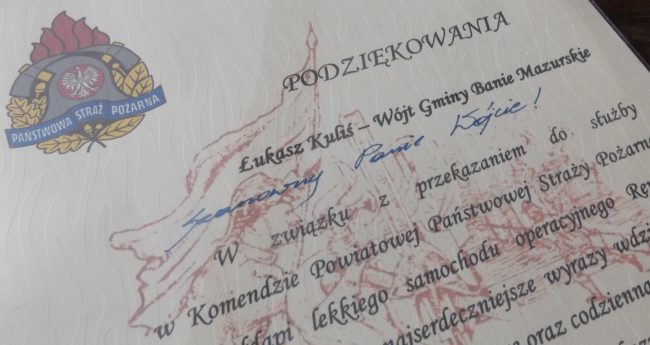 PAŃSTWOWA STRAŻ POŻARNA
PODZIĘKOWANIA
Łukasz Kuliś – Wójt Gminy Banie Mazurskie
Szanowny Panie Wójcie!
W związku z przekazaniem do służby
w Komendzie Powiatowej Państwowej Straży Pożarne
łapi lekkiego samochodu operacyjnego Ren
najserdeczniejsze wyrazy wdzi
oraz codzienna